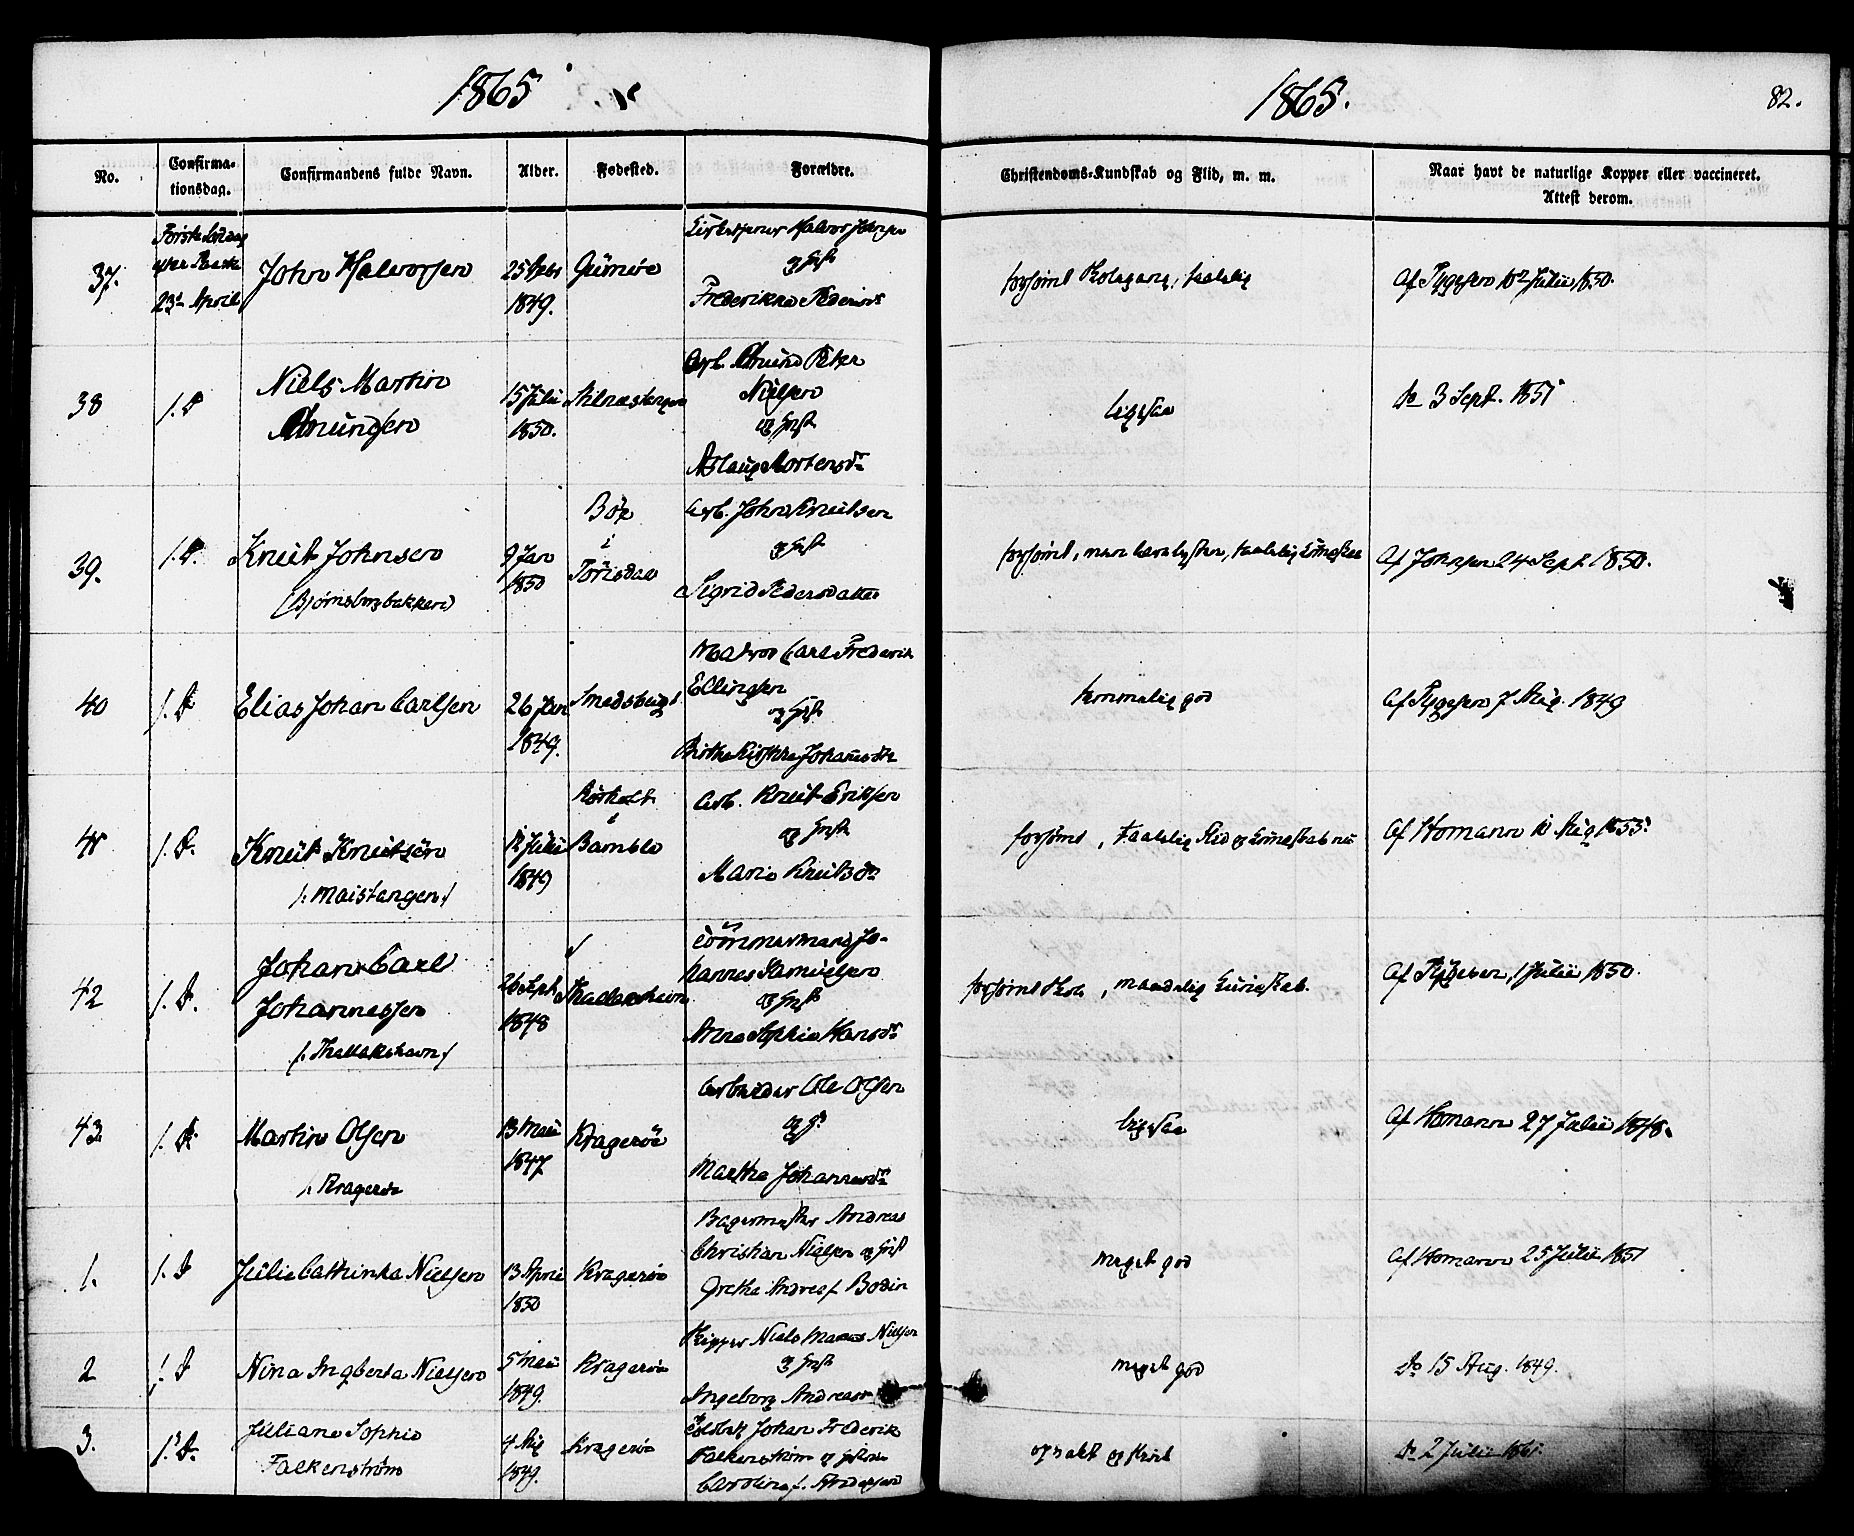 1865
1865.
82.
No.
Confirma-
tionsdag.
Confirmandens fulde Navn.
Alder.
Fødested.
Forældre.
Christendoms-Kundskab og Flid, m. m.
Naar havt de naturlige Kopper eller vaccineret.
Attest derom.
37.
Første Søndag
efter Paaske
23de April
John Halvorsen
25 Febr
1849.
Gumøe
Halvor Johnsen
og Hust
Frederikke Pedersdr
forsømt Skolegang, taalelig
Af Tygesen 12 Julii 1850.
38
f. D
Niels Martin
Amundsen
15 Julii
1850.
Arb. Amund Peter
Nielsen
og Hust
Aslaug Mortensdr
ligesaa
Do 3 Sept. 1851
39.
f. D.
Knut Johnsen
(Bjørnsbugbakken)
9 Jan
1850
Bøe
i
Tørisdal
Arb. John Knutsen
og Hust
Sigrid Pedersdatter
forsømt, men lærelysten, taalelig Kundskab
Af Johnsen 24 Sept 1850.
40
f. D
Elias Johan Carlsen
26 Jan
1849.
Smedsbugt
Matros Carl Frederik
Ellingsen
og Hust
Birthe Kirstine Johannesdtr
temmelig god
Af Tygesen 7 Aug. 1849
41
f. D.
Knut Knutsen
/: Maistangen :/
12 Julii
1849
Rørholt
i
Bamble
Arb. Knut Eriksen
og Hust
Marie Knutsdr
forsømt, taalelig Flid og Kundskab nu
Af Homann 10 Aug 1855.
42
f. D.
Johan Carl
Johannessen
/: Thallakshavn :/
26 Sept
1848
Tømmermand Jo-
hannes Samuelsen
og Hust
Anne Sophie Hansdr
forsømt Skole, maadelig Kundskab.
Af Tygesen, 1 Julii 1850.
43.
f. D.
Martin Olsen
/: Kragerøe
13 Mai
1847
Kragerøe
Arbeider Ole Olsen
og H.
Marthe Johannesdr
ligesaa
Af Homann 27 Julii 1848.
1.
f. D
Julie Cathinka Nielsen
13 April
1850
Kragerøe
Bagermester Andreas
Christian Nielsen og Hust
Grethe Andrea f. Bodin
meget god
Af Homann 25 Julii 1851
2
f. D
Nina Ingberta Nielsen
5 Mai
1849.
Kragerøe
Skipper Niels Nielsen
og Hust
Ingeborg Andreasdr
meget god
Do 15 Aug. 1849.
3.
f. D.
Juliane Sophie
Falkenstrøm
4 Aug
1849.
Kragerøe
Johan Frederik
Falkenstrøm og Hustru
Caroline f. Andersen
opvakt og flink
Do 2 Julii 1861